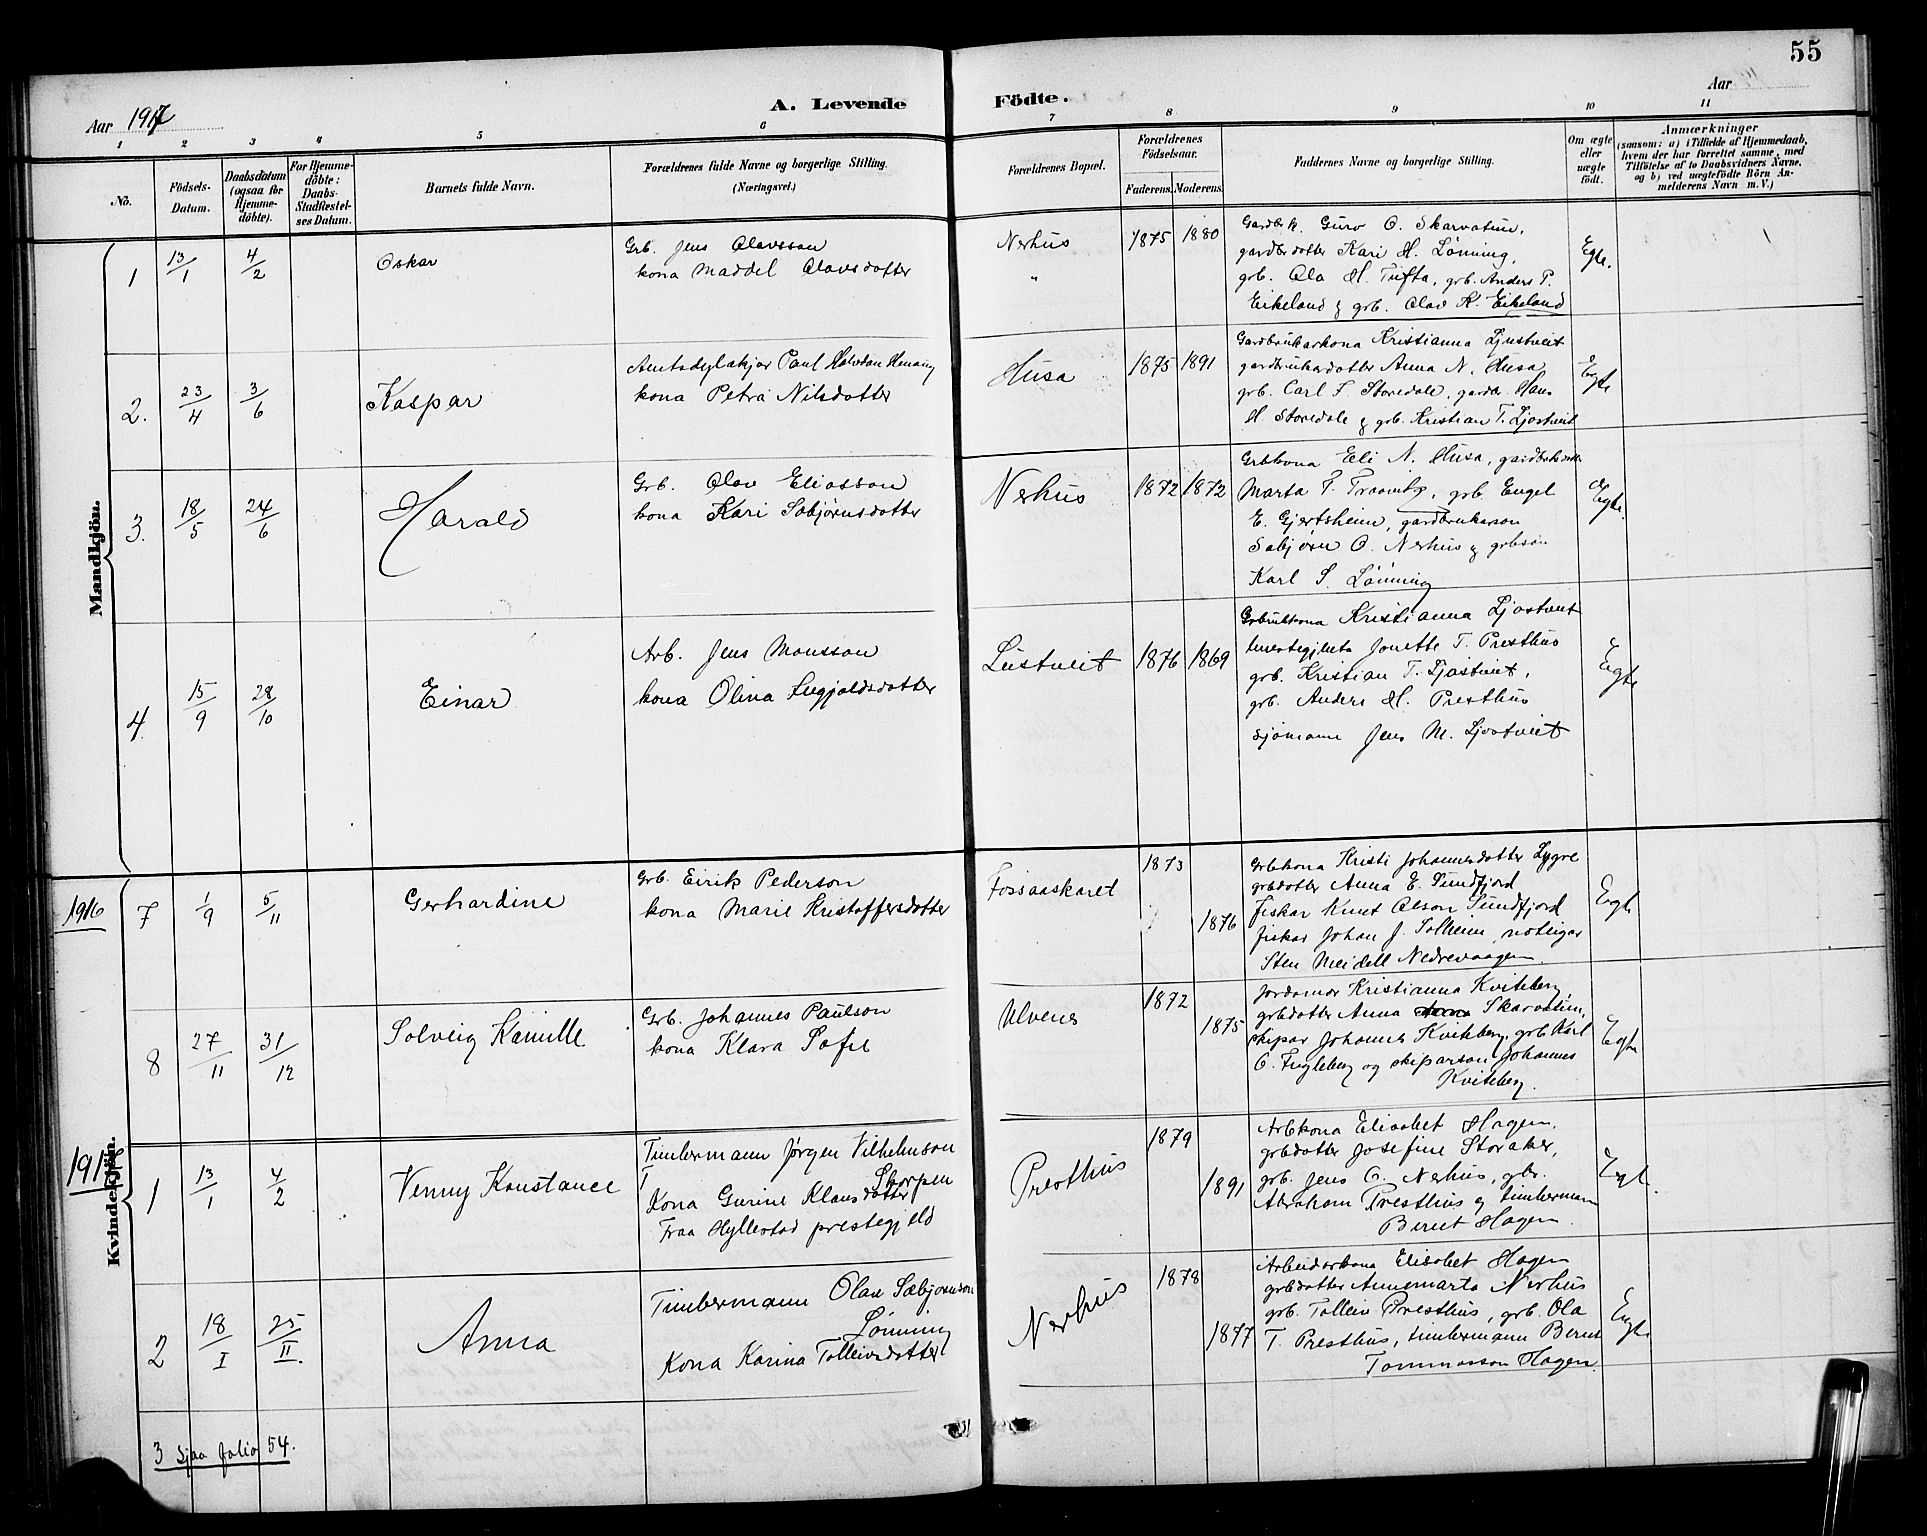 55
A. Levende Födte.
Aar 1917
Aar
1 2 3 4 5 6 7 8 9 10 11
No.
Födsels-Datum.
Daabsdatum (ogsaa for Hjemme-döbte).
For Hjemme-döbte: Daabs-Stadfæstel-ses Datum.
Barnets fulde Navn.
Forældrenes fulde Navne og borgerlige Stilling. (Næringsvei.)
Forældrenes Bopæl.
Forældrenes Födselsaar.
Faderens. Moderens.
Faddernes Navne og borgerlige Stilling.
Om ægte eller uægte födt.
Anmærkninger
(saasom: a) i Tilfælde af Hjemmedaab, hvem der har forrettet samme, med Tilföielse af to Daabsvidners Navne, og b) ved uegtefödte Börn An-melderens Navn m. V.)
Mandkjön.
1 13/1 4/2 Oskar
Grb. Jens Olavsson
kona Maddel Olavsdotter
Nerhus
"
1875 1880
Gardbr.k. Guro O. Skarvatun,
gardbrdotter Kari H. Lønning,
grb. Ola H. Tufta, grb. Anders P.
Eikeland & grb. Olav K. Eikeland
Egte.
2. 23/4 3/6 Kaspar
Amtsdyrlækjar Paul Halvdan
kona Petra Nilsdotter
Husa
1875 1891
Gardbrukarkona Kristianna Ljostveit
gardbrukardotter Anna N. Husa,
grb. Carl F. Storedale, gardbr. Hans
H. Storedale & grb. Kristian T. Ljostveit
Egte
3. 18/5 24/6 Harald
Grb. Olav Eliasson
kona Kari Sæbjørnsdotter
Nerhus
1872 1872
Grbkona Eli N. Husa,
Marta T. grb. Engel
E. Gjertsheim, gardbrukarson
Sæbjørn O. Nerhus & grbson
Karl S. Lønning
Egte.
4. 15/9 28/10 Einar
Arb. Jens Monsson
kona Olina
Ljostveit
1876 1869
Kristianna Ljostveit
Jonette T. Presthus
grb. Kristian T. Ljostveit,
grb. Anders H. Presthus
sjømann Jens M. Ljostveit
Egte
Kvindekjön.
1916
7 1/9 5/11 Gerhardine
Grb. Eirik Pederson
kona Marie Kristoffersdotter
Fossaaskaret
1873
1876
Grbkona Kristi Johannesdotter Lygre
grbdotter Anna E. Sundfjord
fiskar Knut Olson Sundfjord
fiskar Johan J. Solheim, noteigar
Sten Meidell Nedrevaagen.
Egte
8 27/11 31/12 Solveig Kamille
Grb. Johannes Paulson
kona Klara Sofie
Ulvenes
1872
1875
Jordamor Kristianna Kviteberg,
grbdotter Anna Skarvatun,
skipar Johannes Kviteberg, grb. Karl
O. Fugleberg og skiparson Johannes
Kviteberg.
Egte
1917
1 13/1 4/2 Venny Konstance
Timbermann Jørgen Vilhelmson
Skorpen
Kona Gurine Klausdotter
Fraa Hyllestad prestegjeld
Presthus
1879
1891
Arbkona Elisabet Hagen,
grbdotter Josefine Storaker,
grb. Jens O. Nerhus, gbr.
Abraham Presthus og timberman
Bernt Hagen.
Egte.
2 18/I 25/II. Anna
Timbermann Olav Sæbjørnson
Lønning
Kona Karina Tolleivsdotter
Nerhus
1878
1877
Arbeidarkona Elisabet Hagen
grbdotter Annemarta Nerhus
grb. Tolleiv Presthus, grb. Ola
T. Presthus, timbermann Bernt
Tommasson Hagen
Egte
3 Sjaa folio 54.